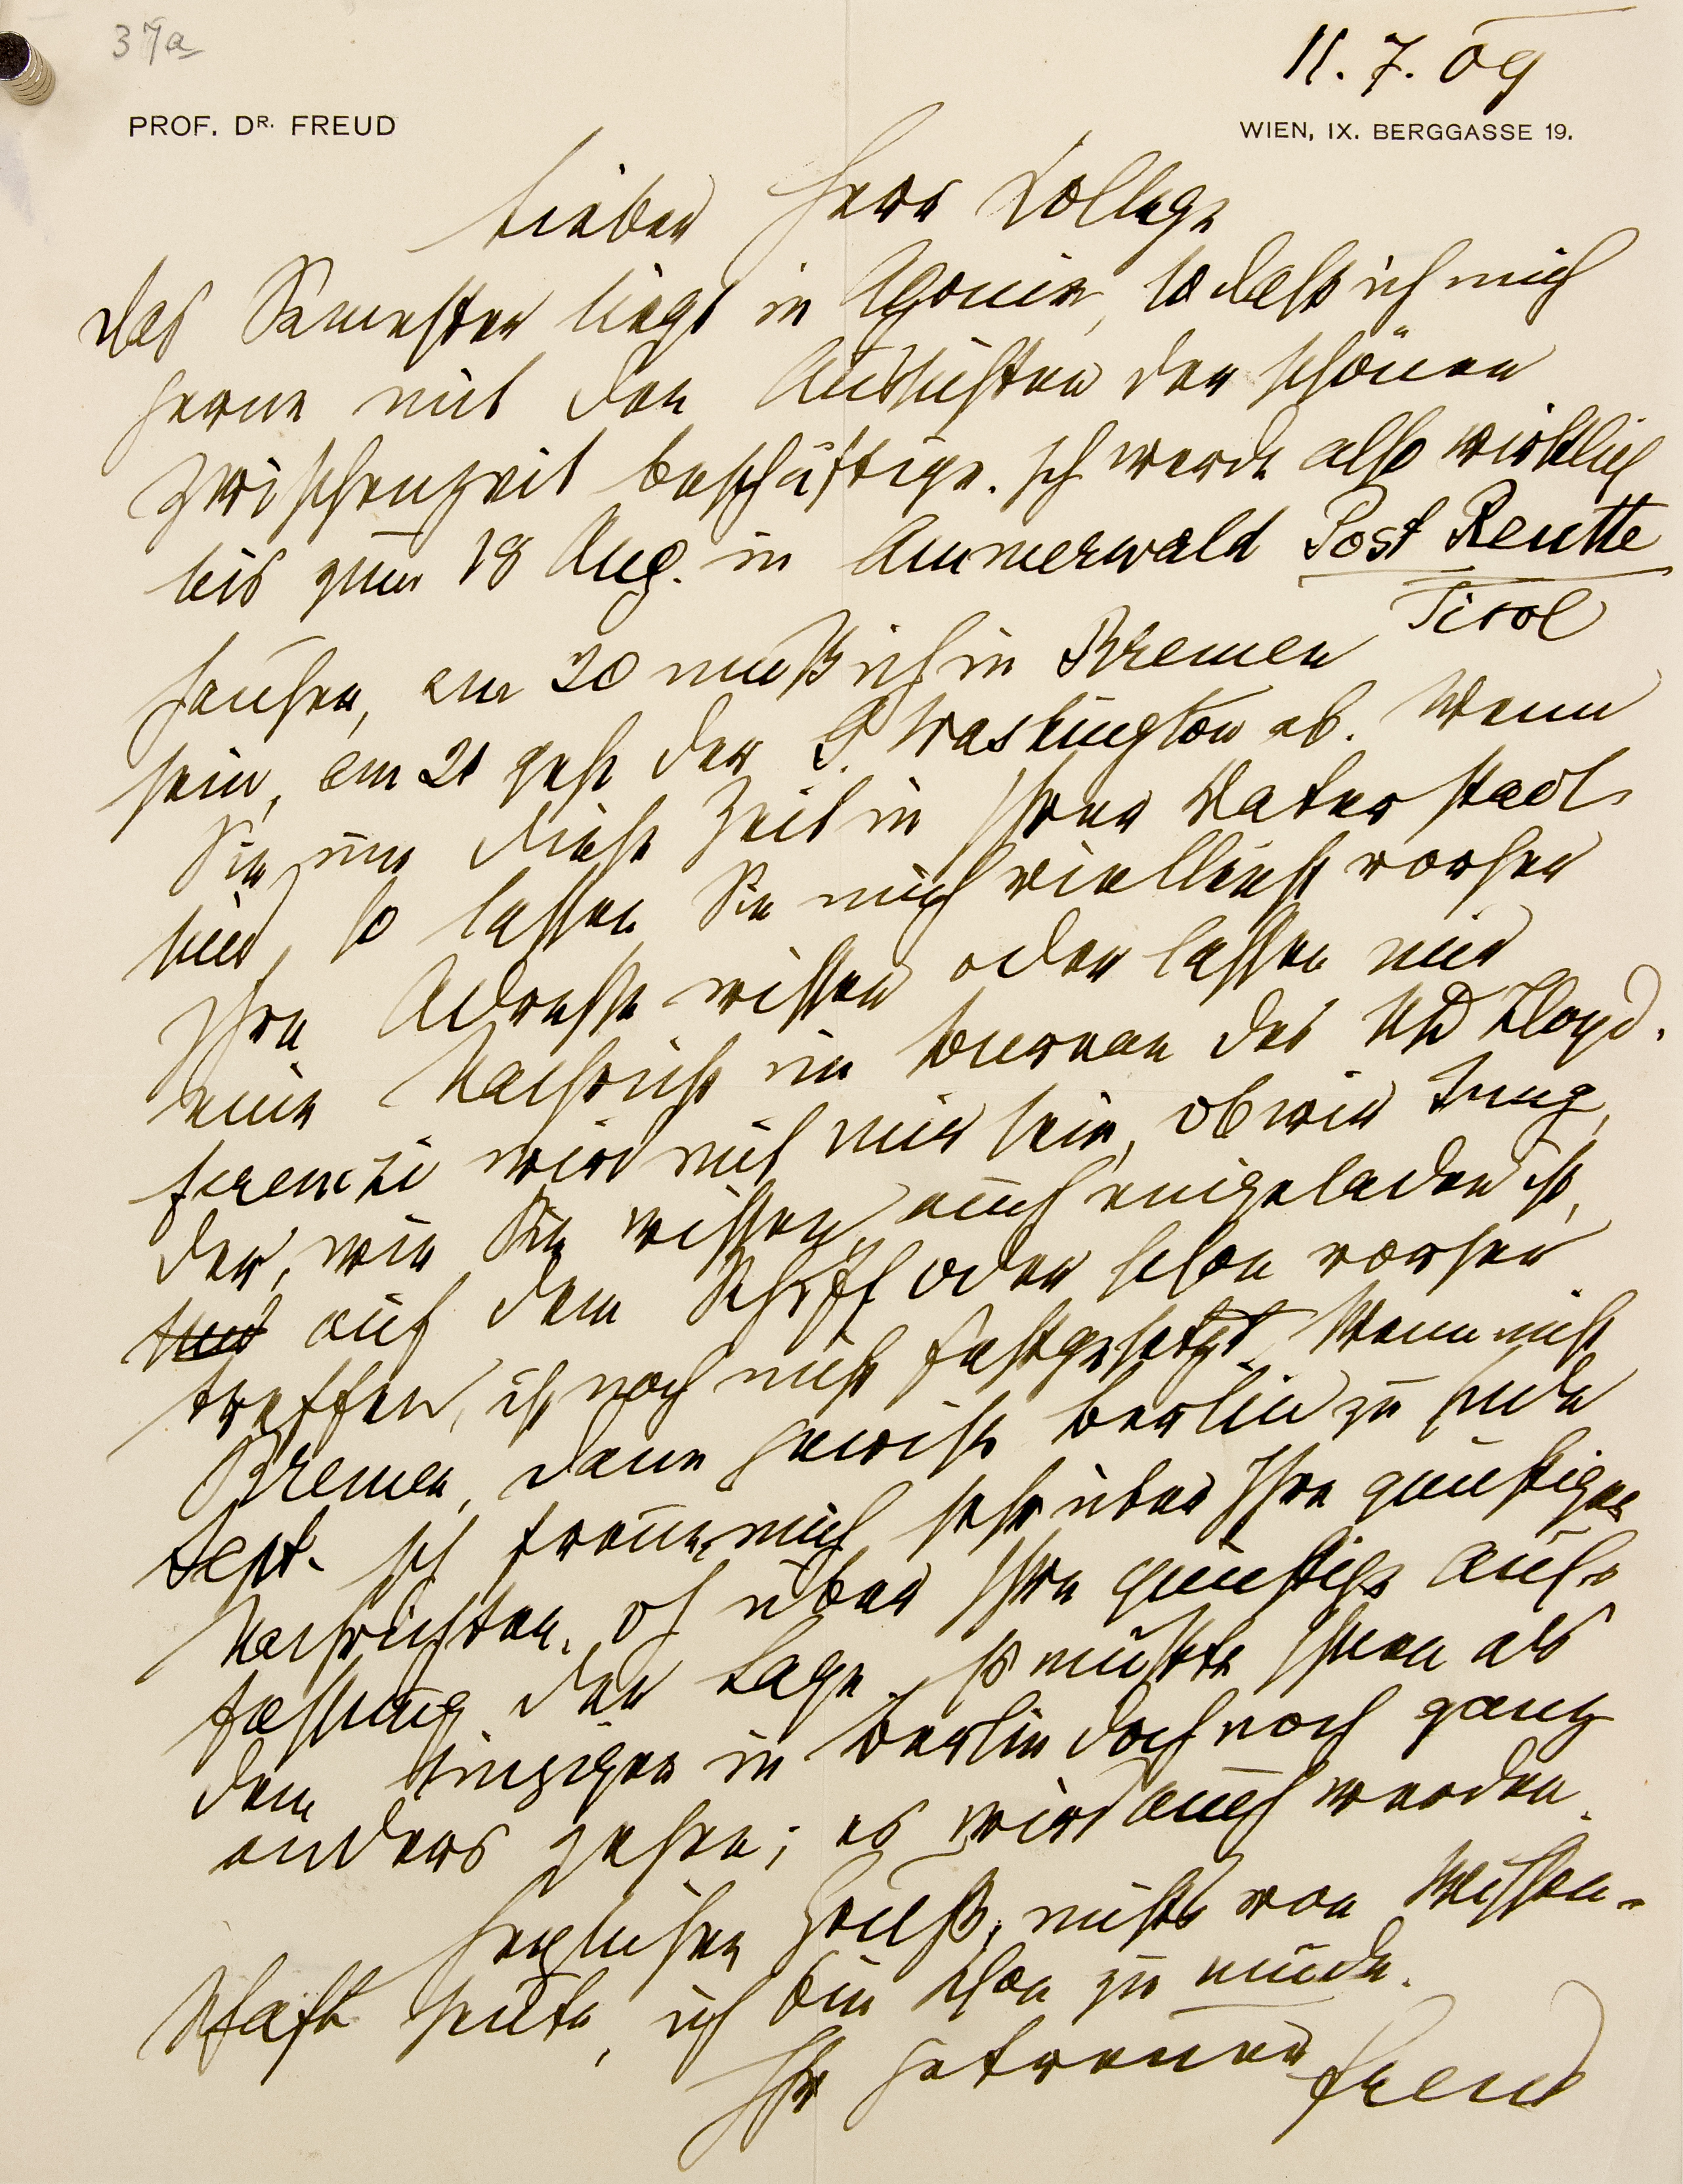 37a
11.7.09
PROF. DR. FREUD
WIEN, IX. BERGGASSE 19.
Lieber Herr Kollege
Das Semester liegt in Agonie, so daß ich mich
gerne mit den Aussichten der schönen
Zwischenzeit beschäftige. Ich werde also wirklich
bis zum 18 Aug. in Ammerwald Post Reutte
Tirol
hausen, am 20 muß ich in Bremen
sein, am 21 geht der G. Washington ab. Wenn
Sie um diese Zeit in Ihrer Vaterstadt
sind, so lassen Sie mich vielleicht vorher
Ihre Adresse wissen oder lassen mir
eine Nachricht im Bureau des ND Lloyd.
Ferenczi wird mit mir sein, ob wir Jung,
der, wie Sie wissen, auch eingeladen ist,
auf dem Schiff oder schon vorher
treffen, ist noch nicht festgesetzt. Wenn nicht
Bremen, dann gewiß Berlin zu Ende
Sept. Ich freue mich sehr über Ihre günstigen
Nachrichten, oh über Ihre günstige Auf-
fassung der Lage. Es müßte Ihnen als
dem Einzigen in Berlin doch noch ganz
anders gehen; es wird auch werden.
Herzlichen Gruß, nichts von Wissen-
schaft heute, ich bin schon zu müde.
Ihr getreuer Freud